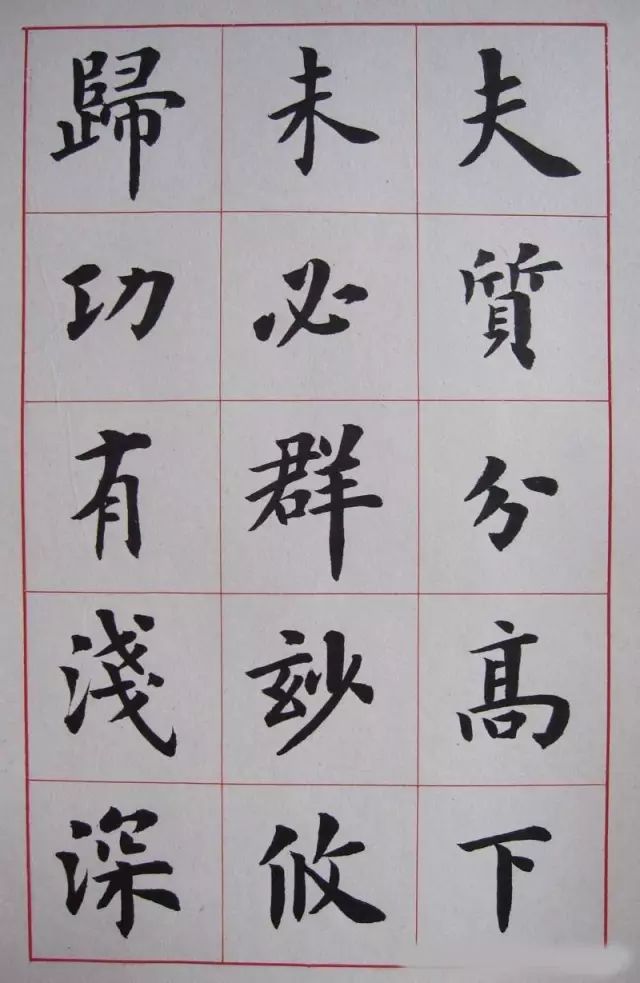 夫質分高下
未必群妙攸
歸功有淺深